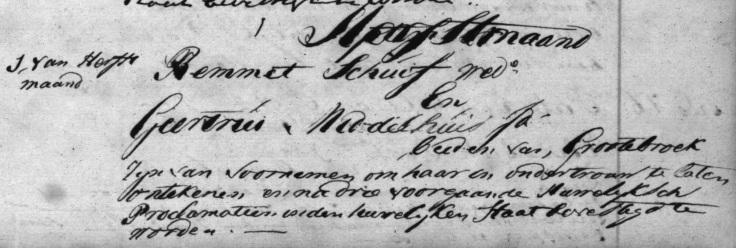 Herfstmaand
J, van Herfst
maand
Remmet Schuijf wedr.
En
Geertruÿ Middelhuis Jd
beiden van, Grootebroek
Zyn van voornemen om haar in ondertrouw te laten
optekenen en na drie voorgaande Huwelyksch
Proclamatien in den huwelyken Staat bevestigd te
worden. —